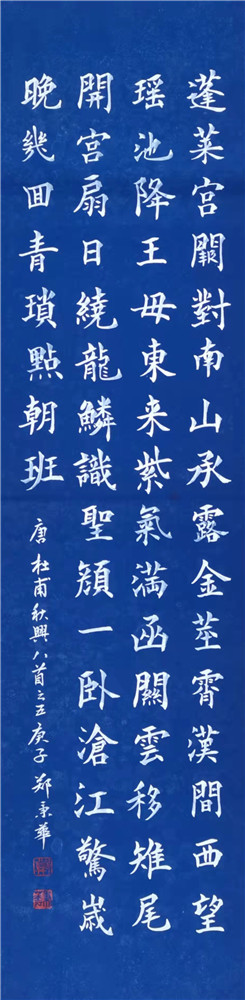 蓬莱宫闕對南山承露金莖霄漢間西望
瑶池降王母東来紫氣满函關雲移雉尾
開宫扇日繞龍鱗識聖顔一卧滄江驚歳
晚幾回青瑣點朝班
唐杜甫秋興八首之五庚子郑秉華